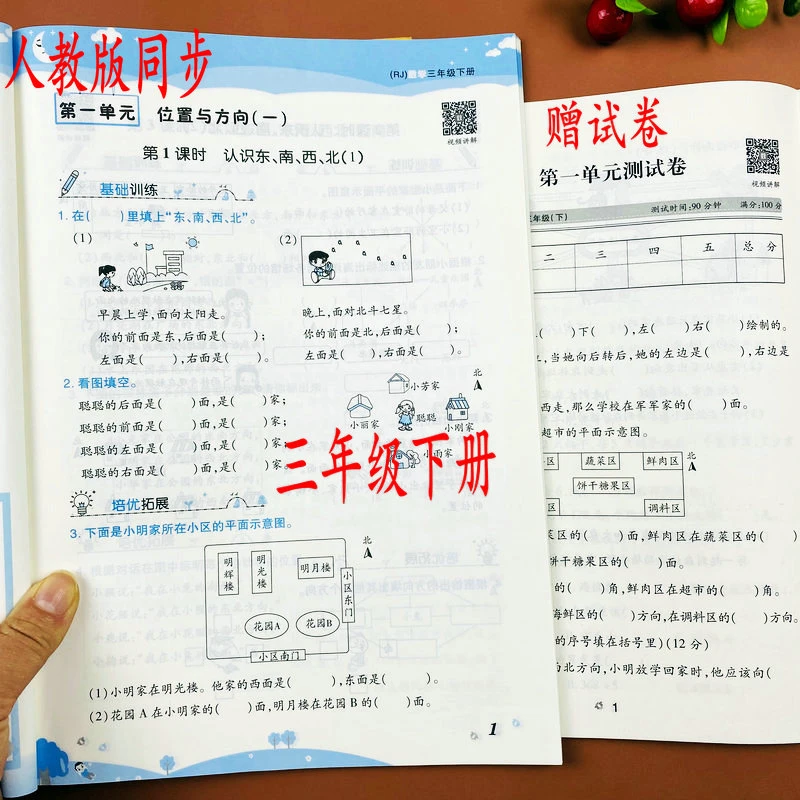 人教版同步
(RJ)数学三年级下册
第一单元 位置与方向(一)
视频讲解
第1课时 认识东、南、西、北(1)
基础训练
1.在( )里填上“东、南、西、北”。
(1)
(2)
早晨上学,面向太阳走。
你的前面是东,后面是( );
左面是( ),右面是( )。
晚上,面对北斗七星。
你的前面是北,后面是( );
左面是( ),右面是( )。
2.看图填空。
聪聪的后面是( )面,是( )家;
聪聪的前面是( )面,是( )家;
聪聪的左面是( )面,是( )家;
聪聪的右面是( )面,是( )家。
北
小芳家
小丽家
聪聪
小刚家
小雨家
三年级下册
培优拓展
3.下面是小明家所在小区的平面示意图。
北
明辉楼
明光楼
明月楼
小区东门
花园A
花园B
小区南门
(1)小明家在明光楼。他家的西面是( ),东面是( )。
(2)花园A在小明家的( )面,明月楼在花园B的( )面。
1
赠试卷
第一单元测试卷
视频讲解
年级(下)
测试时间:90分钟
满分:100分
二 三 四 五 总分
( )下( ),左( )右( )绘制的。
,当她向后转后,她的左边是( ),右边是
西走,那么学校在军军家的( )面。
超市的平面示意图。
区
蔬菜区
鲜肉区
北
饼干糖果区
区
调料区
区的( )面,鲜肉区在蔬菜区的(
干糖果区的( )面。
( )角,鲜肉区在超市的( )角。
海鲜区的( )方向,在调料区的( )
的序号填在括号里)(12分)
北方向,小明放学回家时,他应该向(
1